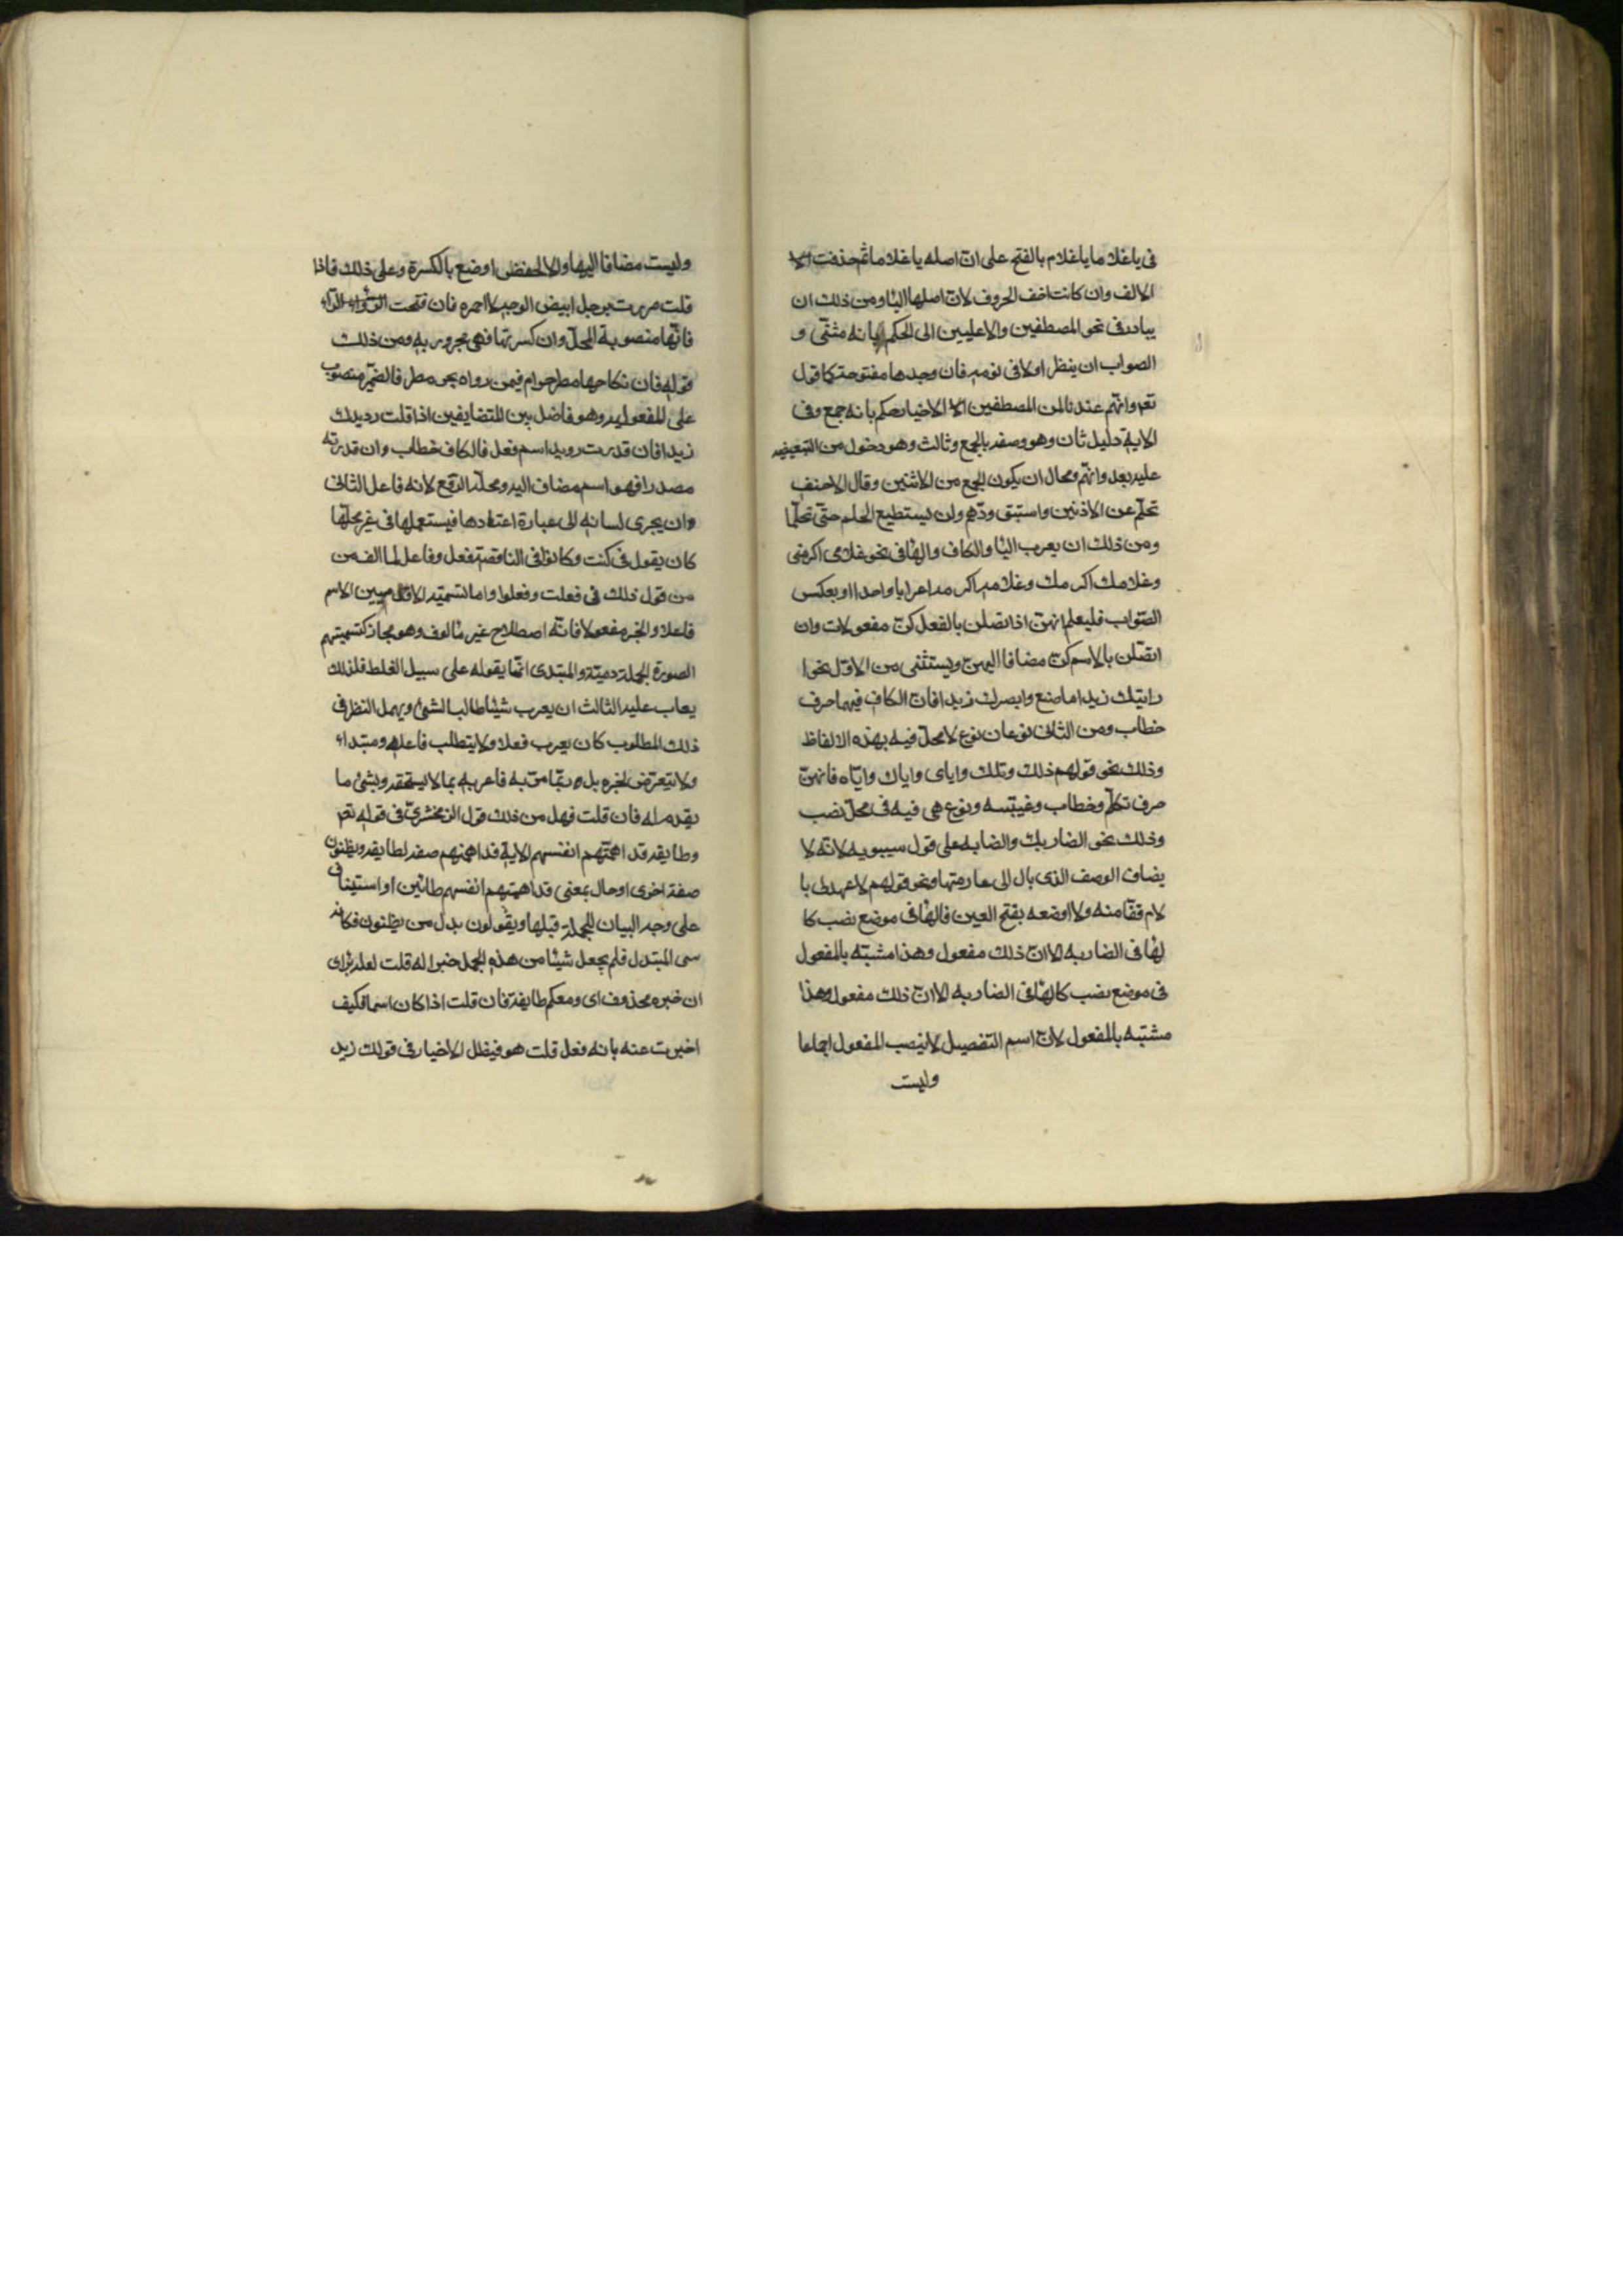 فى ياغلاما ياغلام بالفتح على ان اصله ياغلاما ثم حذفت
الالف وان كانت اخف الحروف لان اصلها اليا ومن ذلك ان
يبادر فى نحو المصطفين والاعليين الى الحكم بانه مثنى و
الصواب ان ينظر اولا فى نونه فان وجدها مفتوحة كما قوله
تعم وانهم عندنا لمن المصطفين الاخيار حكم بانه جمع وفى
الاية دليل ثان وهو وصفه بالجمع وثالث وهو دخول من التبعيضيه
عليه بعد وانهم ومحال ان يكون الجمع من الاثنين وقال الاحنف
تحلم عن الاذنين واستبق ودهم ولن يستطيع الحلم حتى تحلما
ومن ذلك ان يعرب اليا والكاف والها فى نحو غلامى اكرمنى
وغلامك اكرمك وغلامه اكرمه اعرابا واحدا او بعكس
الصواب فليعلم انهن اذا تصلن بالفعل كن مفعولات وان
اتصلن بالاسم كن مضافا اليهن ويستثنى من الاول نحو ا
رايتك زيدا ما صنع وابصرك زيدا فان الكاف فيهما حرف
خطاب ومن الثانى نوعان نوع لا محل فيه بهذه الالفاظ
وذلك نحو قولهم ذلك وتلك واياى واياك واياه فانهن
حرف تكلم وخطاب وغيبته ونوع هى فيه فى محل نصب
وذلك نحو الضاربك والضابه على قول سيبويه لانه لا
يضاف الوصف الذى بال الى عارمنها ونحو قولهم لا عهدلى با
لام قفا منه ولا اوضعه بفتح العين فالها فى موضع نصب كا
لها فى الضاربه الا ان ذلك مفعول وهذا مشبه بالمفعول
فى موضع نصب كالها فى الضاربه الا ان ذلك مفعول وهذا
مشبه بالمفعول لان اسم التفصيل لا ينصب المفعول اجماعا
وليست
وليست مضافا اليها والا لخفض اوضع بالكسرة وعلى ذلك فاذا
قلت مررت برجل ابيض الوجه لا احمره فان فتحت الراء
فانها منصوبة المحل وان كسرتها فهى مجرور به ومن ذلك
قوله فان نكاحها مطر حرام فيمن رواه بجر مطر فالضمير منصوب
على المفعوليه وهو فاضل بين المتضايفين اذا قلت رويدك
زيدا فان قدرت رويدا اسم فعل فالكاف خطاب وان قدرته
مصدرا فهو اسم مضاف اليه ومحله الرفع لانه فاعل الثانى
وان يجرى لسانه الى عبارة اعتادها فيستعملها فى غير محلها
كان يقول فى كنت وكانوا فى الناقصة فعل وفاعل لما الف من
من قول ذلك فى فعلت وفعلوا واما تسميته الاقدمين الاسم
فاعلا والخبر مفعولا فانه اصطلاح غير مألوف وهو مجاز كتسميتهم
الصورة الجملة دمية والمبتدى انما يقوله على سبيل الغلط فلذلك
يعاب عليه الثالث ان يعرب شيئا طالبا لشئ ويهمل النظر فى
ذلك المطلوب كان يعرب فعلا ولا يتطلب فاعله ومبتداء
ولا يتعرض لخبره بل ربما مر به فاعربه بما لا يستحقه وبشئ ما
يقدم له فان قلت فهل من ذلك قول الزمخشرى فى قوله تعم
وطايفة قد اهمتهم انفسهم الاية قد اهمتهم صفة لطايفة ويظنون
صفة اخرى او حال بمعنى قد اهمتهم انفسهم ظانين او استيناف
على وجه البيان للجملة قبلها ويقولون بدل من يظنون فكانه
سى المبتدا فلم يجعل شيئا من هذه الجمل خبرا له قلت لعله راى
ان خبره محذوف اى ومعكم طايفة فان قلت اذا كان اسما فكيف
اخبرت عنه بانه فعل قلت هو فيظل الاخبار فى قولك زيد